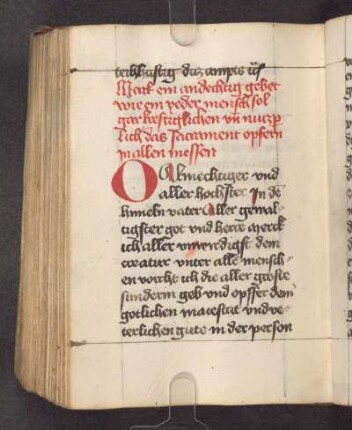 teilhafftig diz ampts
Merck ein andechtig gebet
wie ein yeder mensch sol
gar krefftiglichen vnd nutzp
lich das Sacrament opfern
in allen messen
O Almechtiger vnd
aller hochster In dē
himeln vater Aller gewal-
tigster got vnd herre merck
ich aller vnwirdigst dem
creatur vnter alle mensch-
en vorcht ich die aller groste
sunderin gib vnd opffer deiner
gotlichen maiestat vnd ve-
terlichen gute in der person